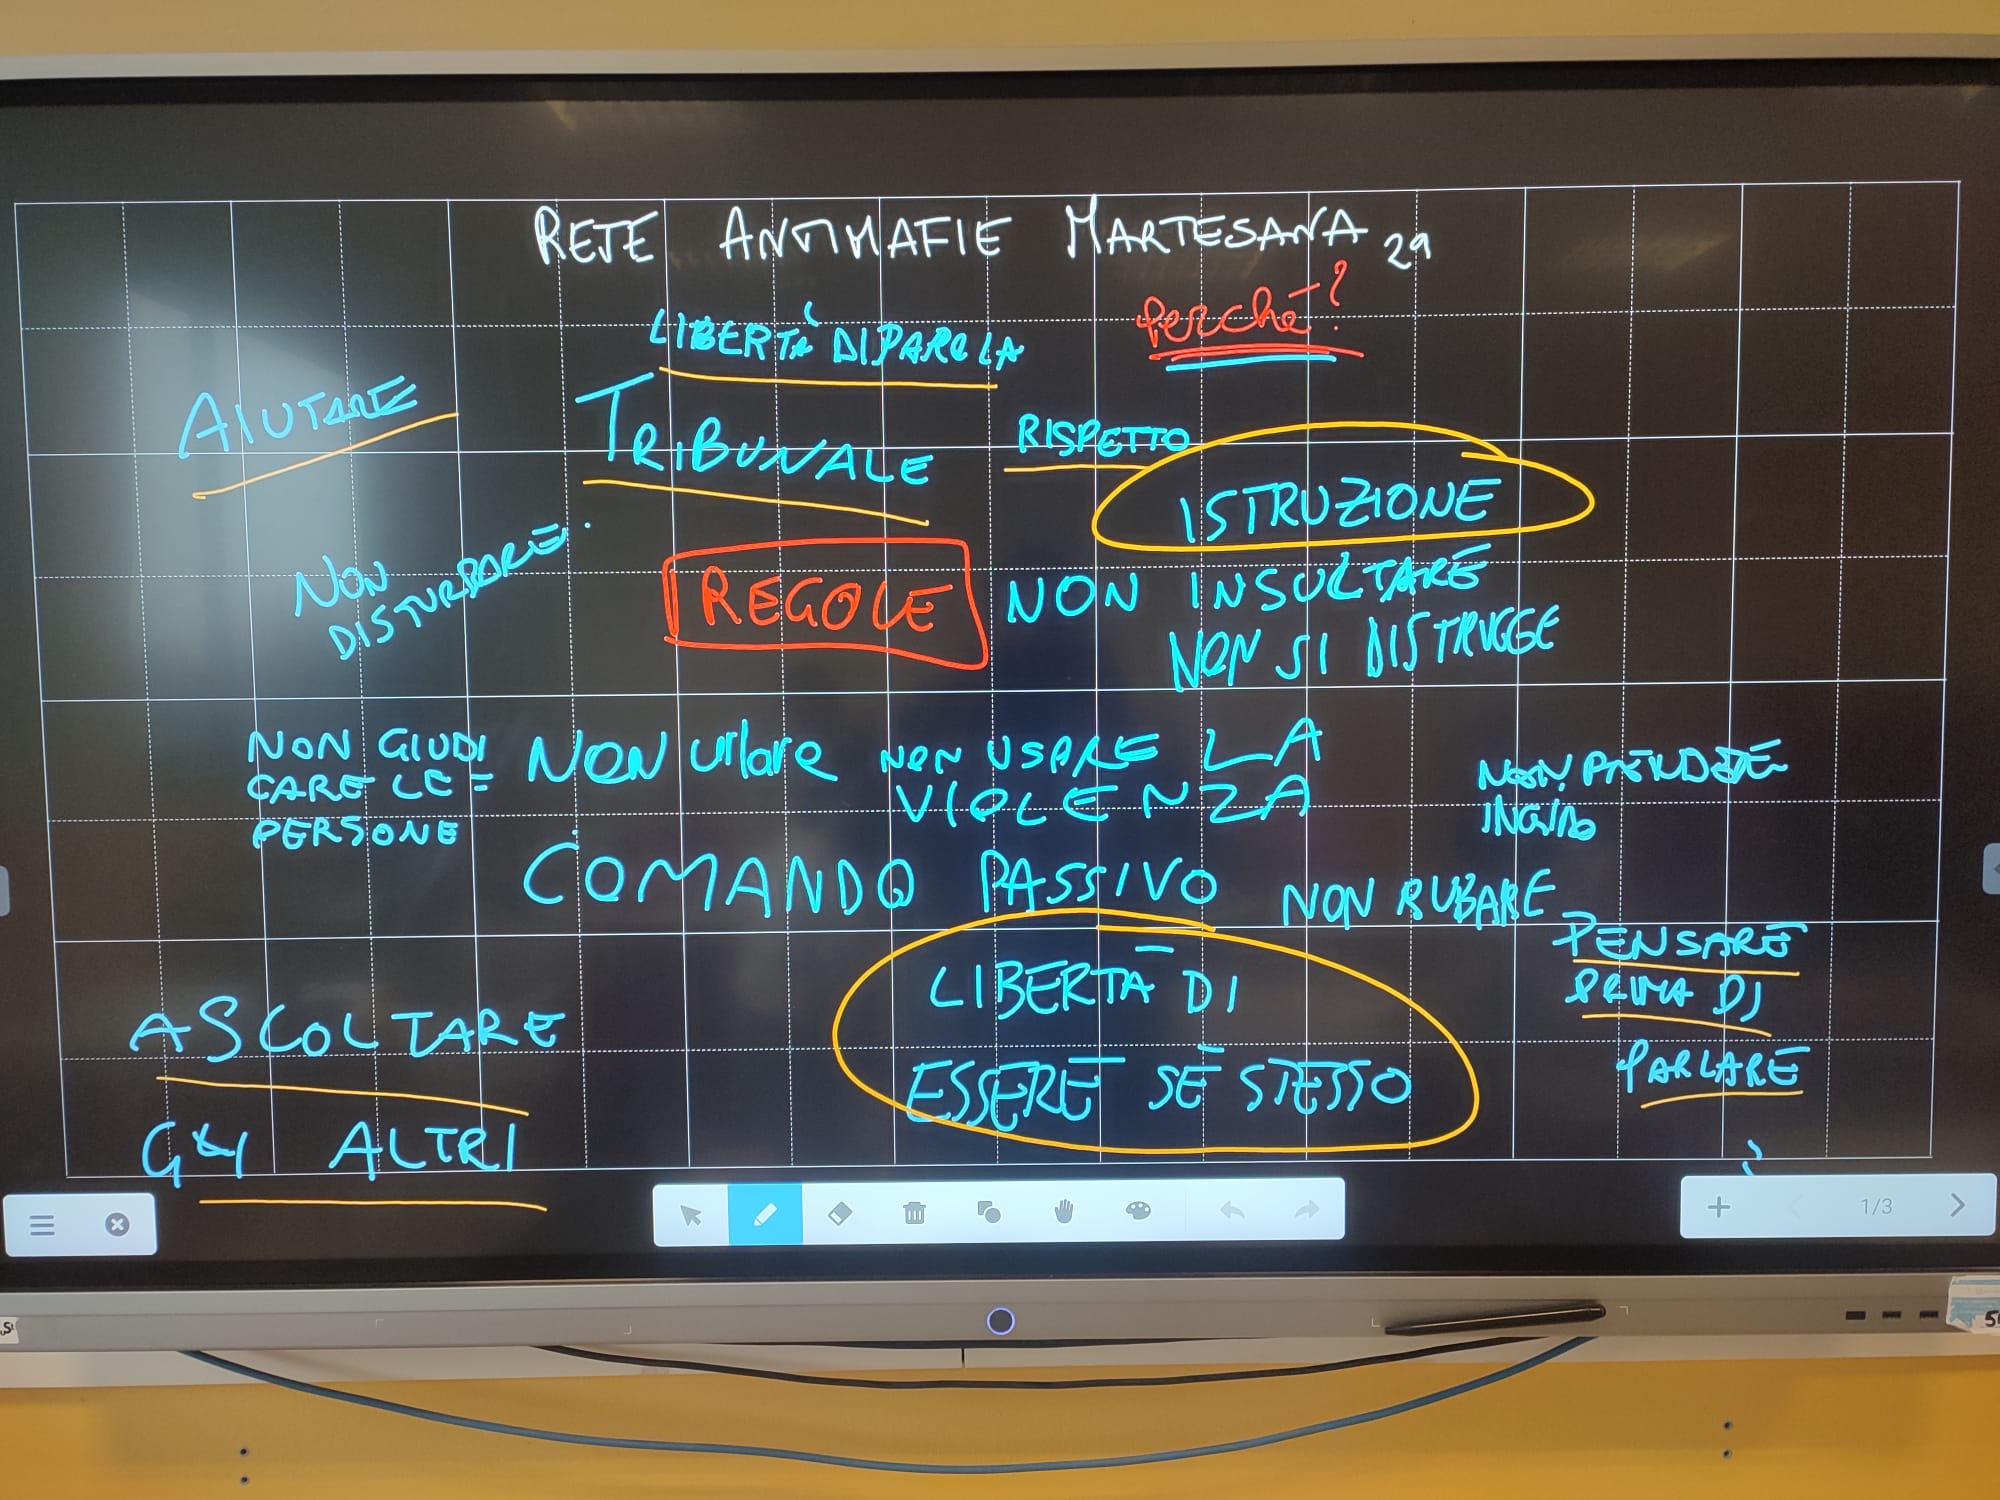 RETE ANTIMAFIE MARTESANA 2a
LIBERTÀ DI PAROLA
Perché?
AIUTARE
TRIBUNALE
RISPETTO
ISTRUZIONE
NON
DISTURBARE
REGOLE
NON INSULTARE
NON SI DISTRUGGE
NON GIUDI
CARE LE =
PERSONE
NON urlare
NON USARE LA
VIOLENZA
NON PRENDERE
IN GIRO
COMANDO PASSIVO
NON RUBARE
PENSARE
PRIMA DI
PARLARE
LIBERTÀ DI
ESSERE SÉ STESSO
ASCOLTARE
GLI ALTRI
1/3